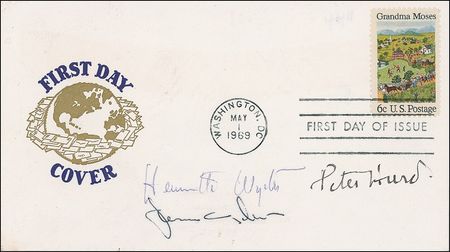 Grandma Moses
6c U.S. Postage
FIRST DAY
COVER
WASHINGTON, DC
MAY
1
1969
FIRST DAY OF ISSUE
Henriette Wyeth
Peter Hurd.